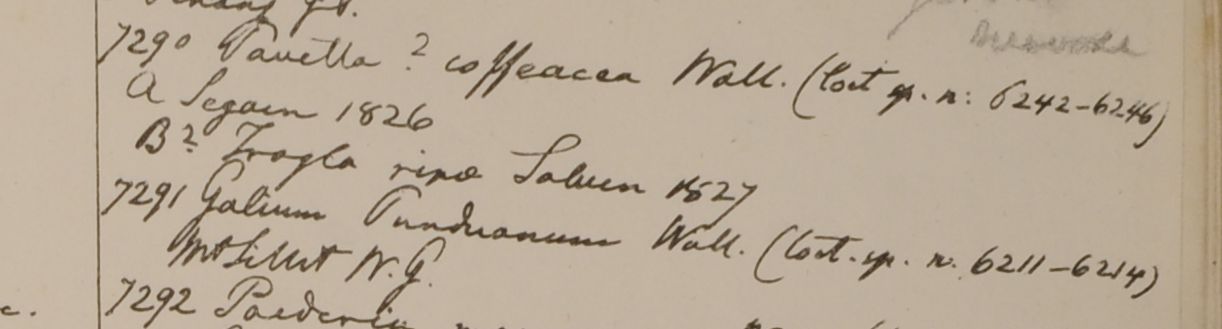 7290 Pavetta ? coffeacea Wall. (Cat. sp. n: 6242-6246)
A Segain 1826
B? Trogla ripæ Saluen 1827
7291 Galium Purduanum Wall. (Cat. sp. n. 6211-6214)
Mt Sillet W.G.
7292 Paederia